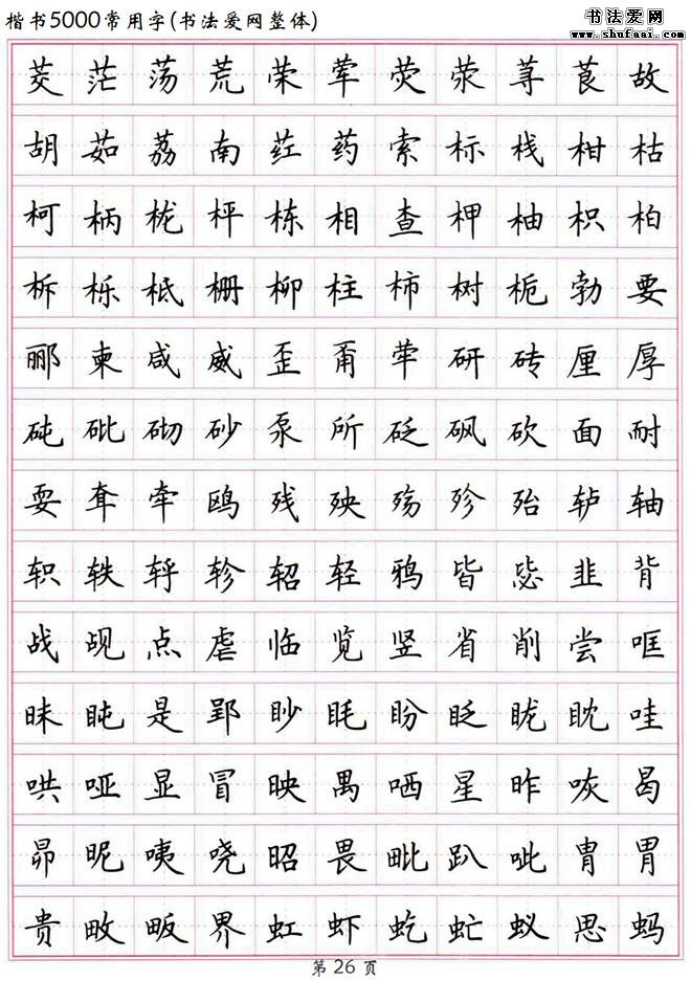 楷书5000常用字(书法爱网整体)
书法爱网
www.shufaai.com
茭 茫 荡 荒 荣 荤 荧 荥 荨 茛 故
胡 茹 荔 南 荭 药 索 标 栈 柑 枯
柯 柄 栊 枰 栋 相 查 柙 柚 枳 柏
柝 栎 柢 栅 柳 柱 柿 树 栀 勃 要
郦 柬 咸 威 歪 甭 荦 研 砖 厘 厚
砘 砒 砌 砂 泵 所 砭 砜 砍 面 耐
耍 耷 牵 鸥 残 殃 殇 殄 殆 轳 轴
轵 轶 轷 轸 轺 轻 鸦 皆 毖 韭 背
战 觇 点 虐 临 览 竖 省 削 尝 哐
昧 盹 是 郢 眇 眊 盼 眨 昽 眈 哇
哄 哑 显 冒 映 禺 哂 星 昨 咴 曷
昴 昵 咦 哓 昭 畏 毗 趴 呲 胄 胃
贵 畋 畈 界 虹 虾 虼 虻 蚁 思 蚂
第 26 页